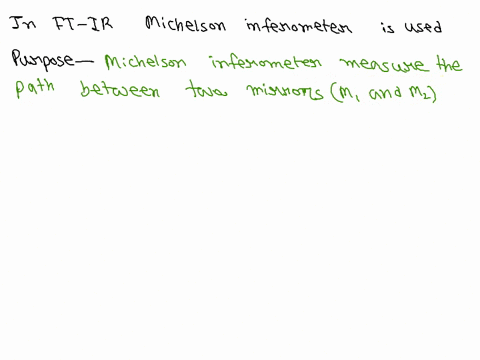 In FT-IR Michelson inferometer is used
Purpose— Michelson inferometer measure the
path between two mirrors (M1 and M2)